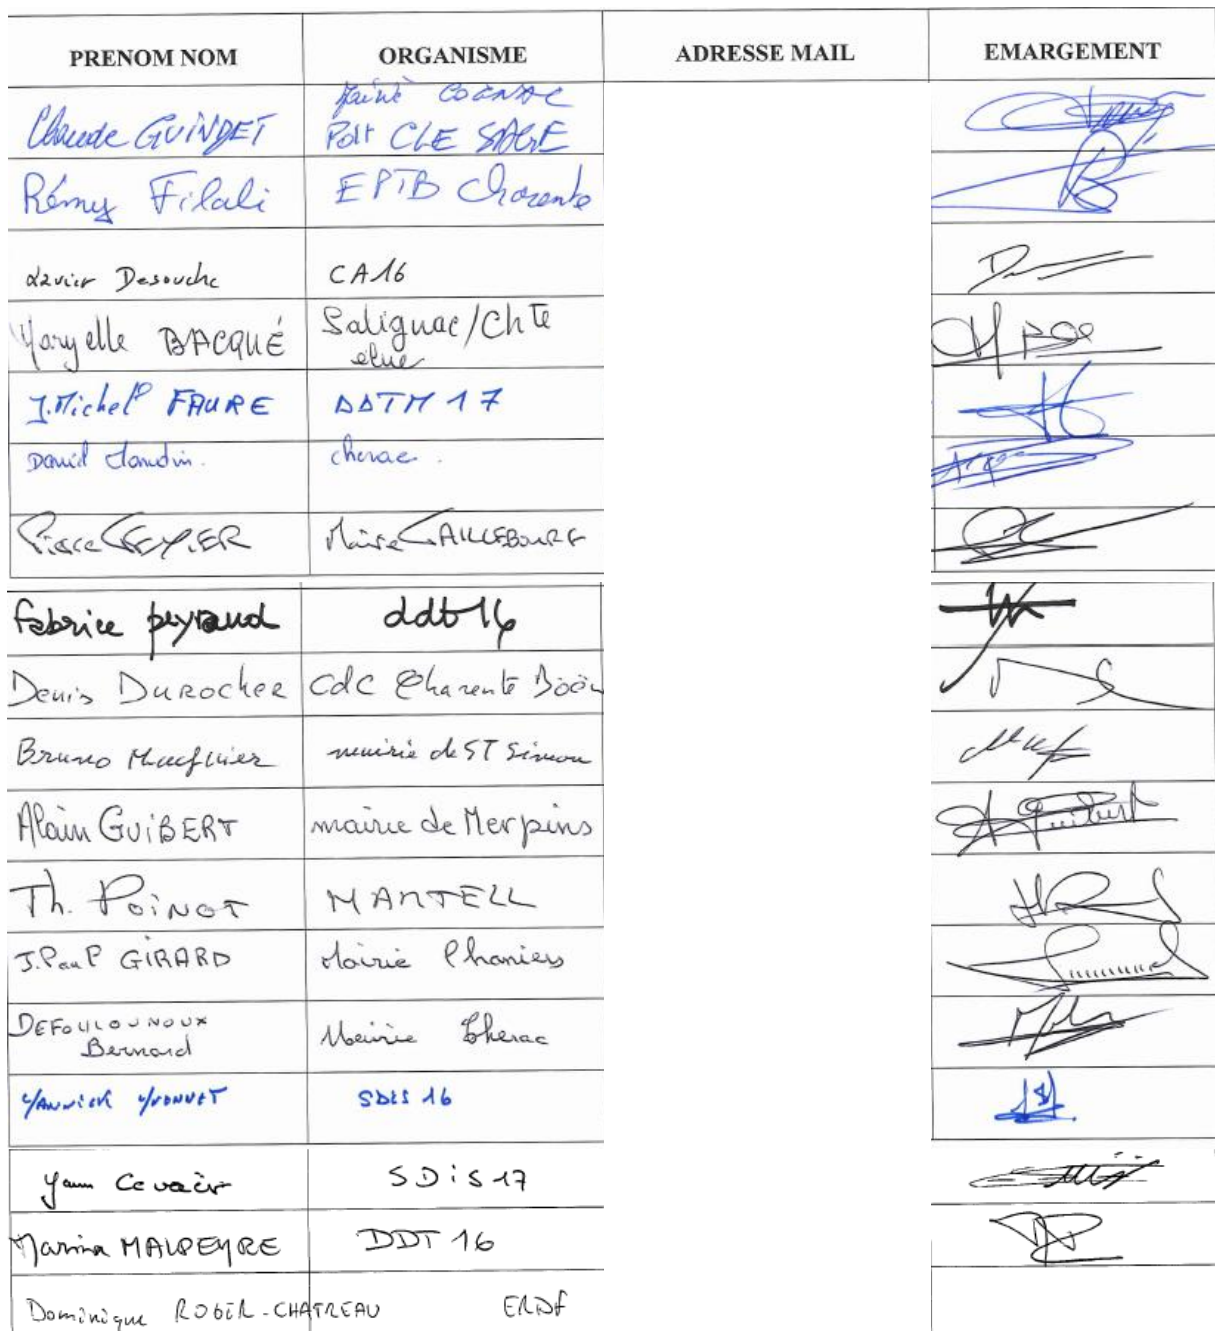 PRENOM NOM ORGANISME ADRESSE MAIL EMARGEMENT
Mairie COGNAC
Claude GUINDET Pdt CLE SAGE
Rémy Filali EPTB Charente
Xavier Desouche CA16
Maryelle BACQUÉ Salignac/Chte
elue
J.Michel FAURE DDTM 17
Daniel cherac.
Pierre Maire TAILLEBOURG
Fabrice peyraud ddt 16
Denis DUROCHER CdC Charente
Bruno mairie de ST Simon
Alain GUIBERT mairie de Merpins
Th. POINOT MARTELL
J.Paul GIRARD Mairie Chaniers
DEFOULOUNOUX
Bernard Mairie Cherac
YANNICK YVONNET SDIS 16
Yann SDiS 17
Marina MALPEYRE DDT 16
Dominique ROGER-CHATREAU ERDF